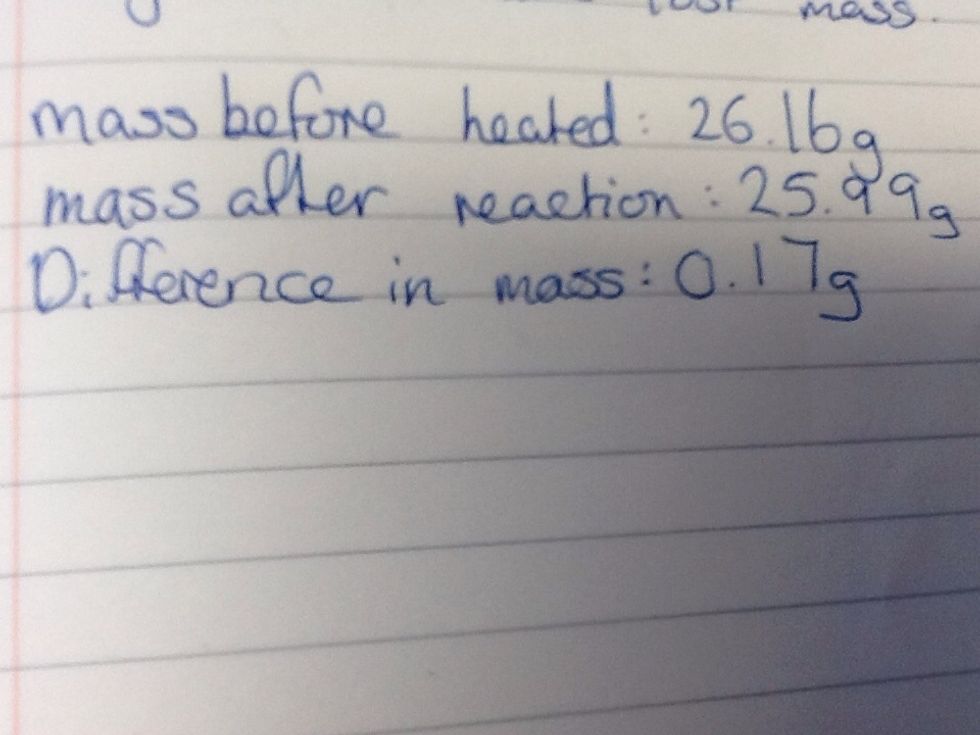 lost mass.
mass before heated: 26.16g
mass after reaction: 25.99g
Difference in mass: 0.17g